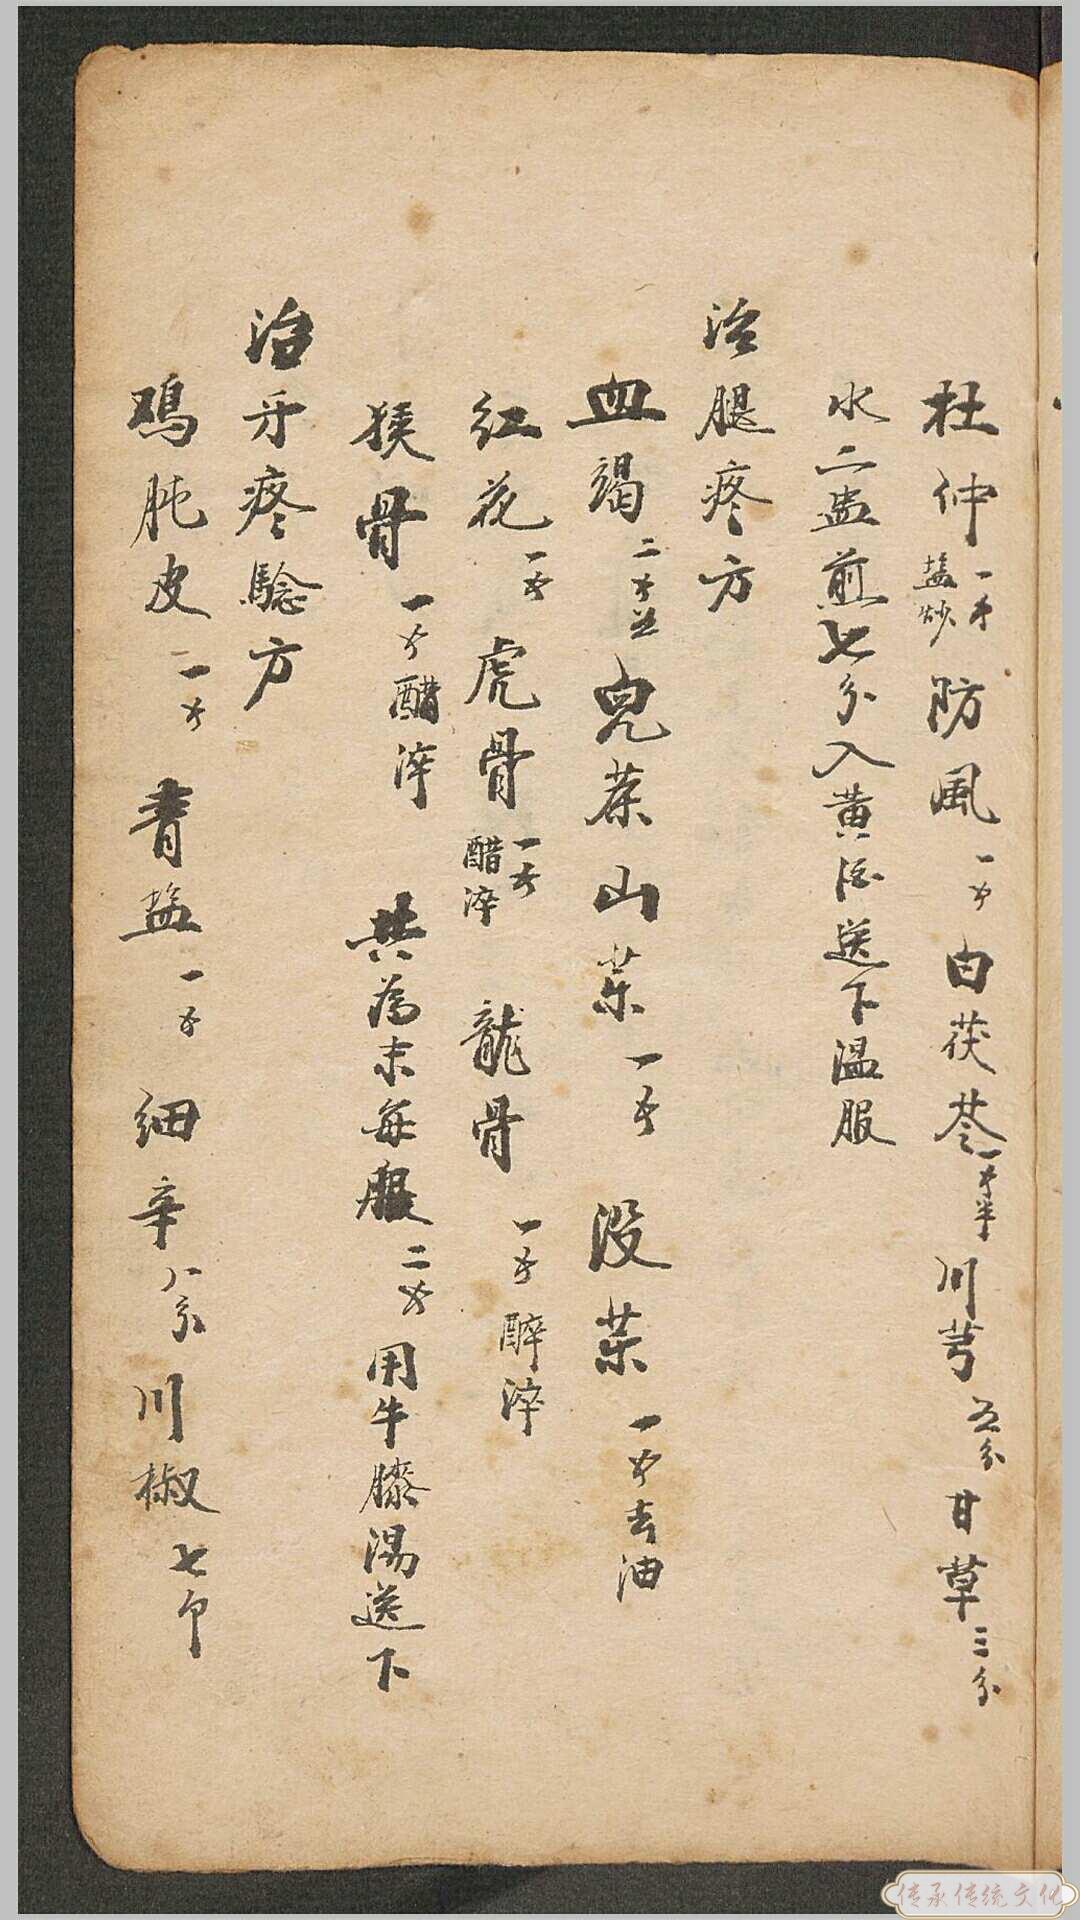 杜仲一才盐炒防風一才白茯苓一才半川芎五分甘草三分
水二盅煎七分入黄酒送下温服
治腿疼方
血竭二才五兒茶山茶一才没藥一才去油
紅花一才虎骨一才醋淬龍骨一才醉淬
猴骨一才醋淬共為末每服二才用牛膝湯送下
治牙疼驗方
鸡肫皮一才青盐一才細辛八分川椒七个
传承传统文化